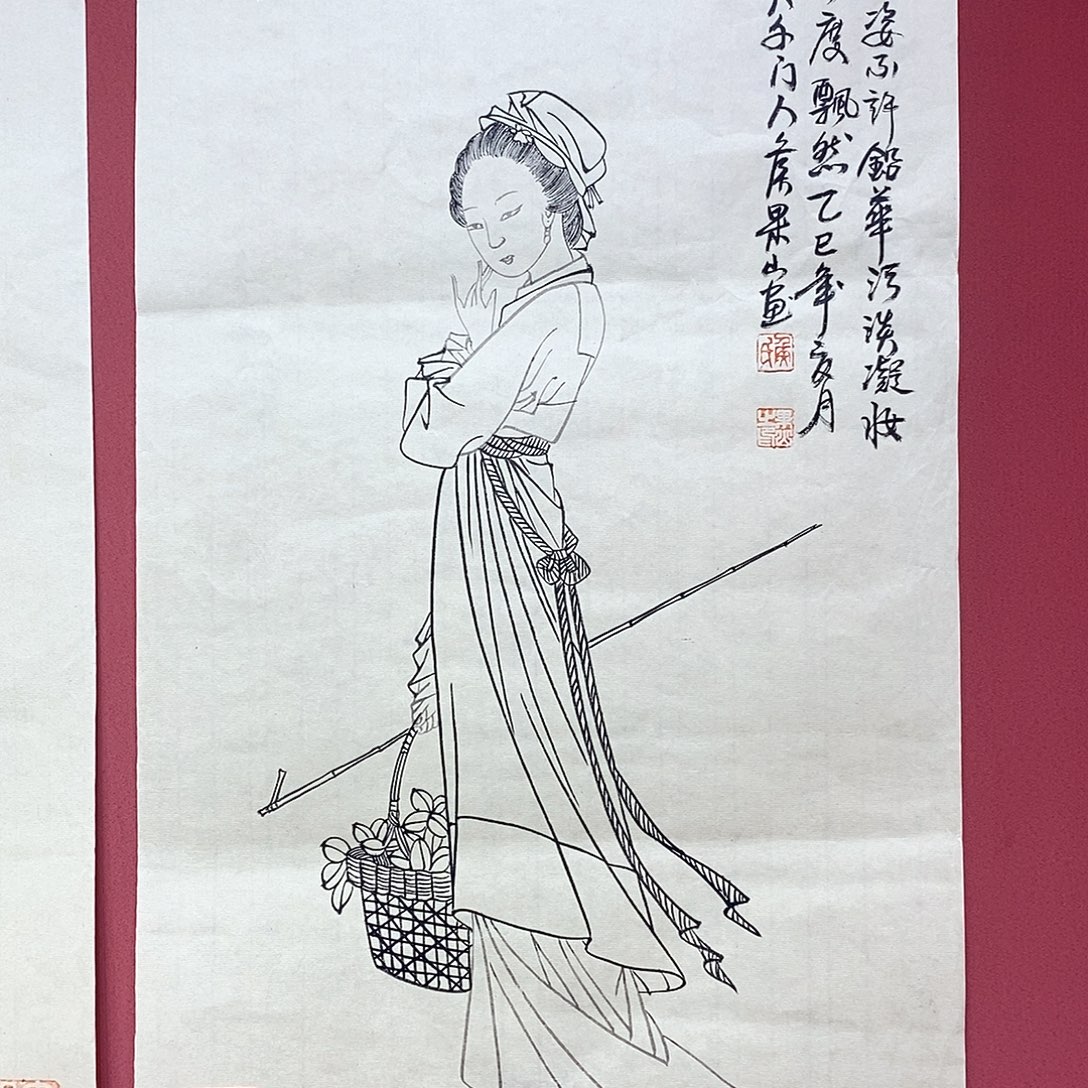 姿不許鉛華污淡凝妝
度飄然乙巳年夏月
千门人矦果山画